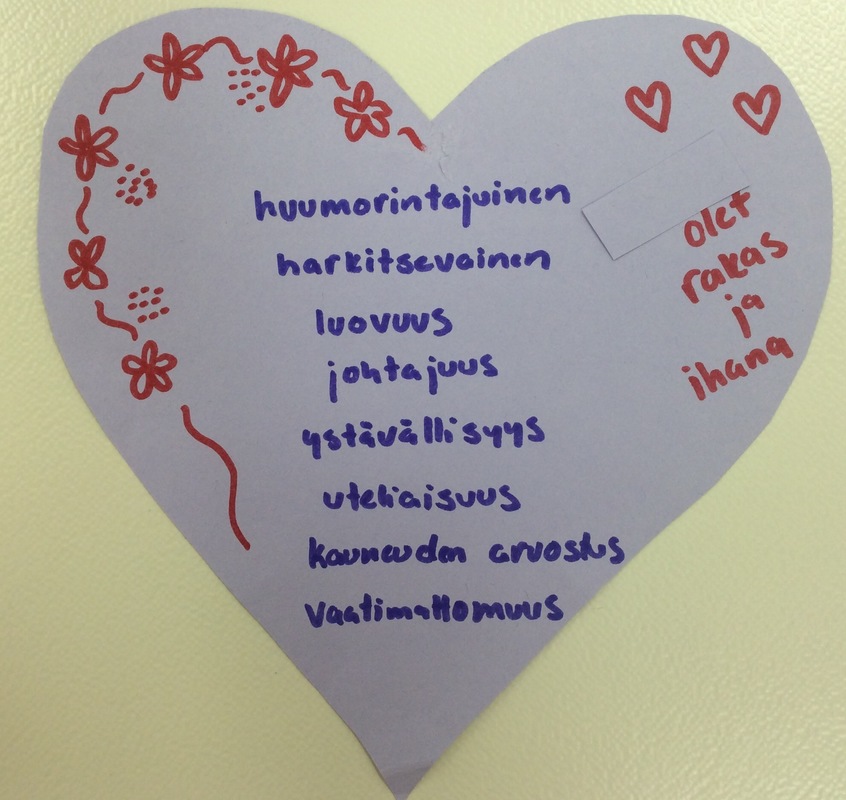 huumorintajuinen
harkitsevainen
luovuus
johtajuus
ystävällisyys
uteliaisuus
kauneuden arvostus
vaatimattomuus
olet
rakas
ja
ihana